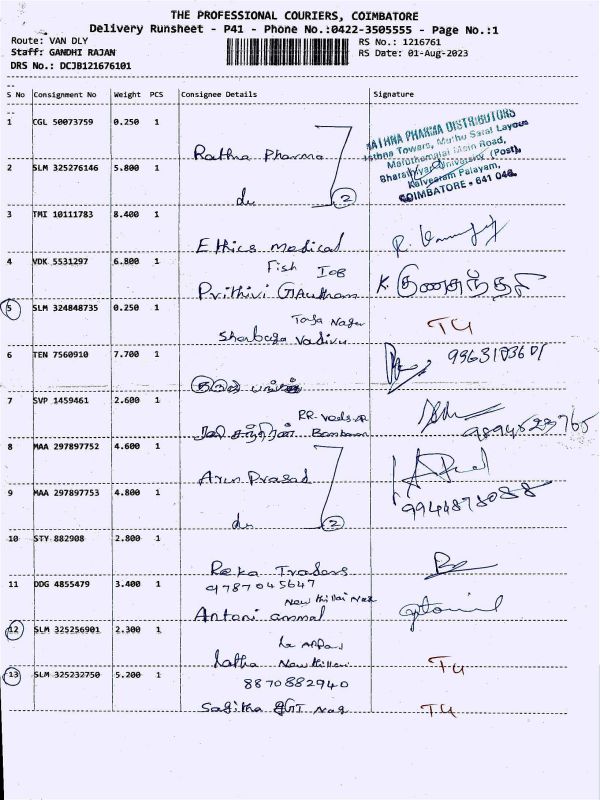 THE PROFESSIONAL COURIERS, COIMBATORE
Delivery Runsheet - P41 - Phone No.:0422-3505555 - Page No.:1
Route: VAN DLY
RS No.: 1216761
Staff: GANDHI RAJAN
RS Date: 01-Aug-2023
DRS No.: DCJB121676101
S No Consignment No Weight PCS Consignee Details Signature
1 CGL 50073759 0.250 1
Rathna Pharma
RATHNA PHARMA DISTRIBUTORS
Rathna Towers, Muthu Sarai Layout
Maruthamalai Main Road,
Bharathiyar University (Post),
Kalveeram Palayam,
COIMBATORE - 641 046.
2 SLM 325276146 5.800 1
do 2
3 TMI 10111783 8.400 1
Ethics medical
4 VDK 5531297 6.800 1
Fish IOB
Prithivi Gautham
K.
5 SLM 324848735 0.250 1
Nagar
Shenbaga vadivu
6 TEN 7560910 7.700 1
7 SVP 1459461 2.600 1
8 MAA 297897752 4.600 1
Arun Prasad
9 MAA 297897753 4.800 1
9944878088
do 2
10 STY 882908 2.800 1
Reka Traders
11 DDG 4855479 3.400 1
9787045647
New thillai Nag
Antoni ammal
12 SLM 325256901 2.300 1
Latha New thillai
13 SLM 325232750 5.200 1
8870882940
Sajitha Nag